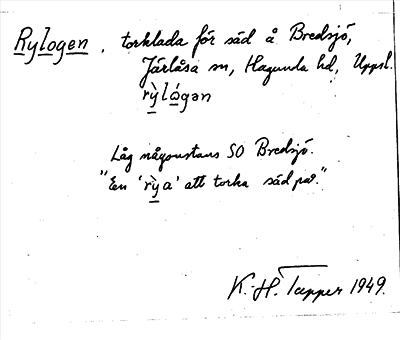 Rylogen, torklada för säd å Bredsjö,
Järlåsa sn, Hagunda hd, Uppsl.
rỳlógən
Låg någonstans SO Bredsjö.
"En 'rỳa' att torka säd på."
K.-H. Tapper 1949.